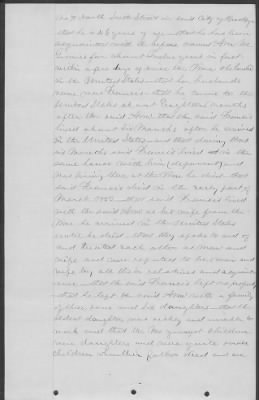 No 7 North Sixth Street in said City of Brooklyn
that he is 26 years of age that he has been
acquainted with the before named Ann Mc
Ginnis for about twelve years in fact
within a few days of since she came
to the United States her husband
was Francis still he came to the
United States about eighteen months
after the said Ann that the said Francis
lived about six months after he arrived
in the United States and that during that
six months said Francis lived in the
same house with him (deponent) and
was living there at the time he died that
said Francis died in the early part of
March that said Francis lived
with the said Ann as his wife from the
time he arrived in the United States
until he died that they spoke to and of
and treated each other as man and
wife and were reputed to be man and
wife by all their relatives and acquaint
ances that the said Francis left no property
that he left the said Ann with a family
of three sons and six daughters that the
eldest daughter was sickly and unable to
work and that the two youngest children
were daughters and were quite young
children when their father died and are